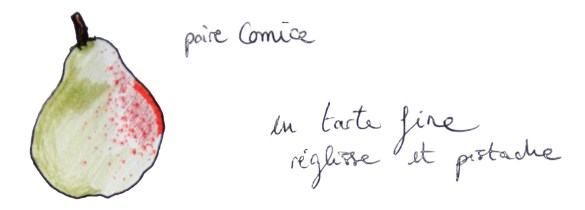 poire Comice
en tarte fine
réglisse et pistache